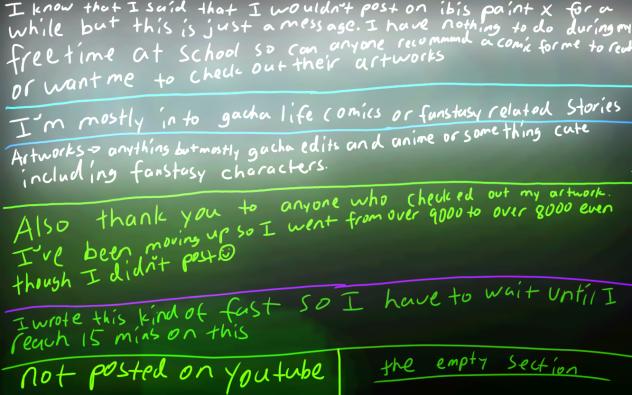 I know that I said that I wouldn't post on ibis paint x for a
while but this is just a message. I have nothing to do during my
freetime at school so can anyone recommend a comic for me to read
or want me to check out their artworks
I'm mostly in to gacha life comics or fanstasy related stories
Artworks → anything but mostly gacha edits and anime or something cute
including fanstasy characters.
Also thank you to anyone who checked out my artwork.
I've been moving up so I went from over 9000 to over 8000 even
though I didn't post☺
I wrote this kind of fast so I have to wait until I
reach 15 mins on this
not posted on youtube
the empty section